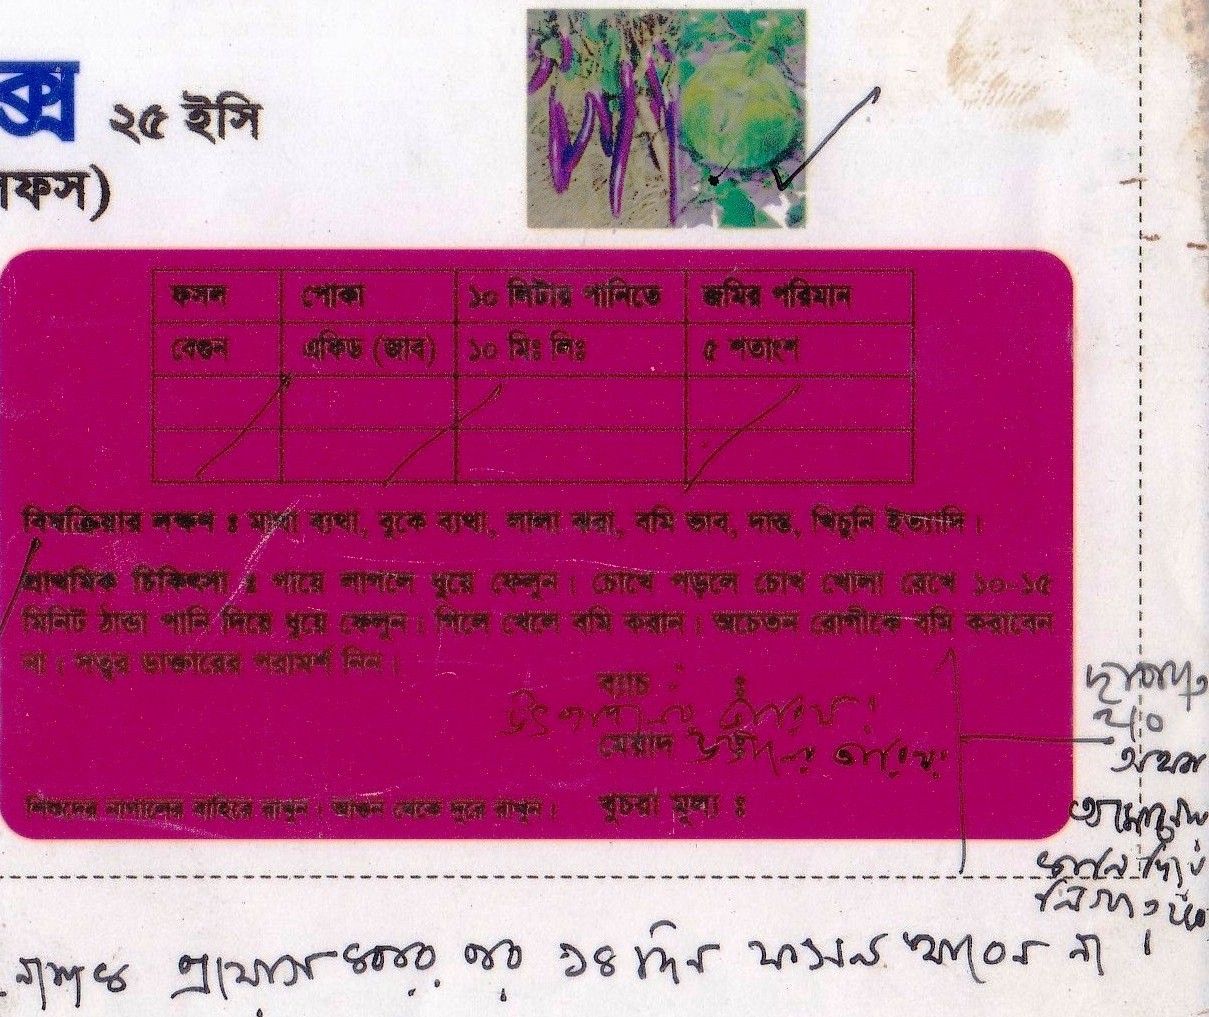 ক্স ২৫ ইসি
ফস)
ফসল পোকা ১০ লিটার পানিতে জমির পরিমান
বেগুন এফিড (জাব) ১০ মিঃ লিঃ ৫ শতাংশ
বিষক্রিয়ার লক্ষণ ঃ মাথা ব্যথা, বুকে ব্যথা, লালা ঝরা, বমি ভাব, দাস্ত, খিচুনি ইত্যাদি।
প্রাথমিক চিকিৎসা ঃ গায়ে লাগলে ধুয়ে ফেলুন। চোখে পড়লে চোখ খোলা রেখে ১০-১৫
মিনিট ঠান্ডা পানি দিয়ে ধুয়ে ফেলুন। গিলে খেলে বমি করান। অচেতন রোগীকে বমি করাবেন
না। সত্বর ডাক্তারের পরামর্শ নিন।
ব্যাচ ঃ
উৎপাদনের তারিখ:
মেয়াদ উত্তীর্ণের তারিখ:
শিশুদের নাগালের বাহিরে রাখুন। আগুন থেকে দূরে রাখুন। খুচরা মূল্য ঃ
প্রয়োগ করার পর ১৪ দিন ফসল খাবেন না